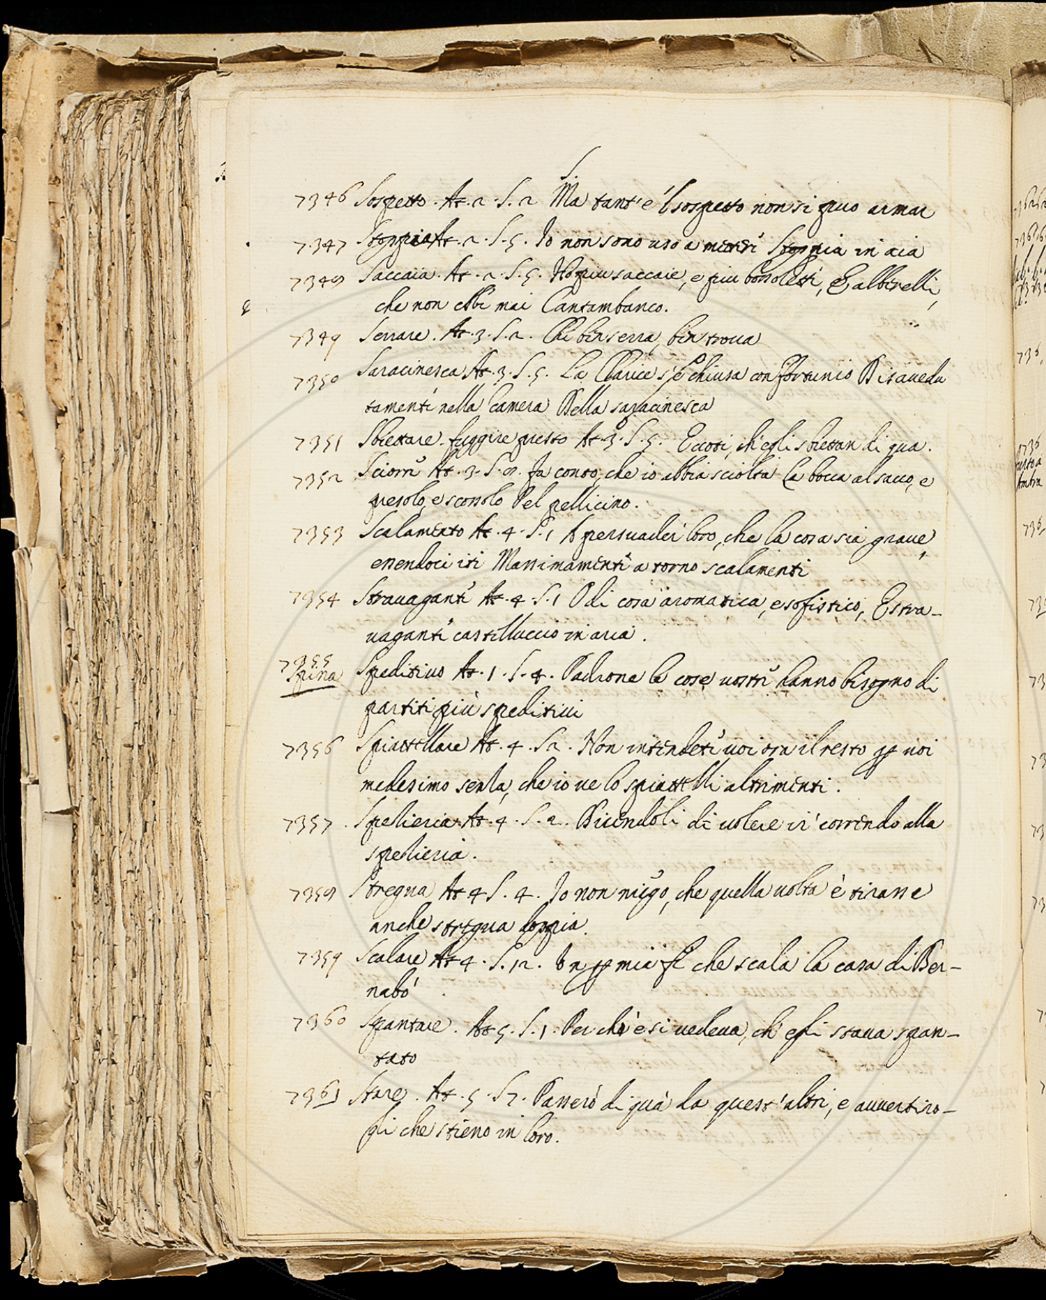 S.
7346 Sospetto. At. 2. S. 2 Ma tant'è 'l sospetto non si puo armar
7347 Stoppia At. 2. S. 5. Io non sono uso a Stoppia in aia
7349 Saccaia. At. 2. S. 5. Ho piu saccaie, e piu bossoletti, E alberelli,
che non ebbi mai Cantambanco.
7349 Serrare. At. 3. S. 2. Chi ben serra ben trova
7350 Saracinesca At. 3. S. 5. La Clarice s'è chiusa con Fortunio Disaveda
tamente nella Camera Della saracinesca
7351 Sbiettare. fuggire presto At. 3. S. 5. Eccoti, ch'egli sbiettan di qua.
7352 Sciorre At. 3. S. Fa conto, che io abbia sciolta La bocca al sacco, e
presolo, e scossolo Pel pellicino.
7353 Scalamento At. 4. S. 1 A persuader loro, che la cosa sia grave,
essendoci iti Massimamente a torno scalamenti
7354 Stravagante At. 4. S. 1 Odi cosa aromatica, e sofistico, E stra-
vagante castelluccio in aria.
7355 Speditivo At. 1. S. 4. Padrone le cose vostre hanno bisogno di
Spina
partiti più speditivi
7356 Spiattellare At. 4. S. 2. Non intendete voi ora il resto p voi
medesimo senza, che io ve lo spiattelli altrimenti.
7357 Spezieria At. 4. S. 2. Dicendoli di volere ir correndo alla
spezieria.
7359 Stregua At 4 S. 4. Io non niego, che quella volta è tirasse
anche stregua doppia.
7359 Scalare At 4. S. 12. Un p mia fe che scala la casa di Ber-
nabò
7360 Spantare. At. 5. S. 1. Per chè e si vedeva, ch'egli stava span-
tato
7361 Stare. At. 5. S 7. Passerò di quà da quest'altri, e avvertiro-
gli che stieno in loro.